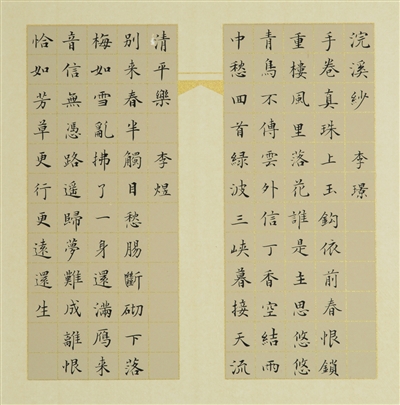 浣溪紗 李璟
手卷真珠上玉鉤依前春恨鎖
重樓風里落花誰是主思悠悠
青鳥不傳雲外信丁香空結雨
中愁回首綠波三峽暮接天流
清平樂 李煜
別來春半觸目愁腸斷砌下落
梅如雪亂拂了一身還滿雁來
音信無憑路遙歸夢難成離恨
恰如芳草更行更遠還生